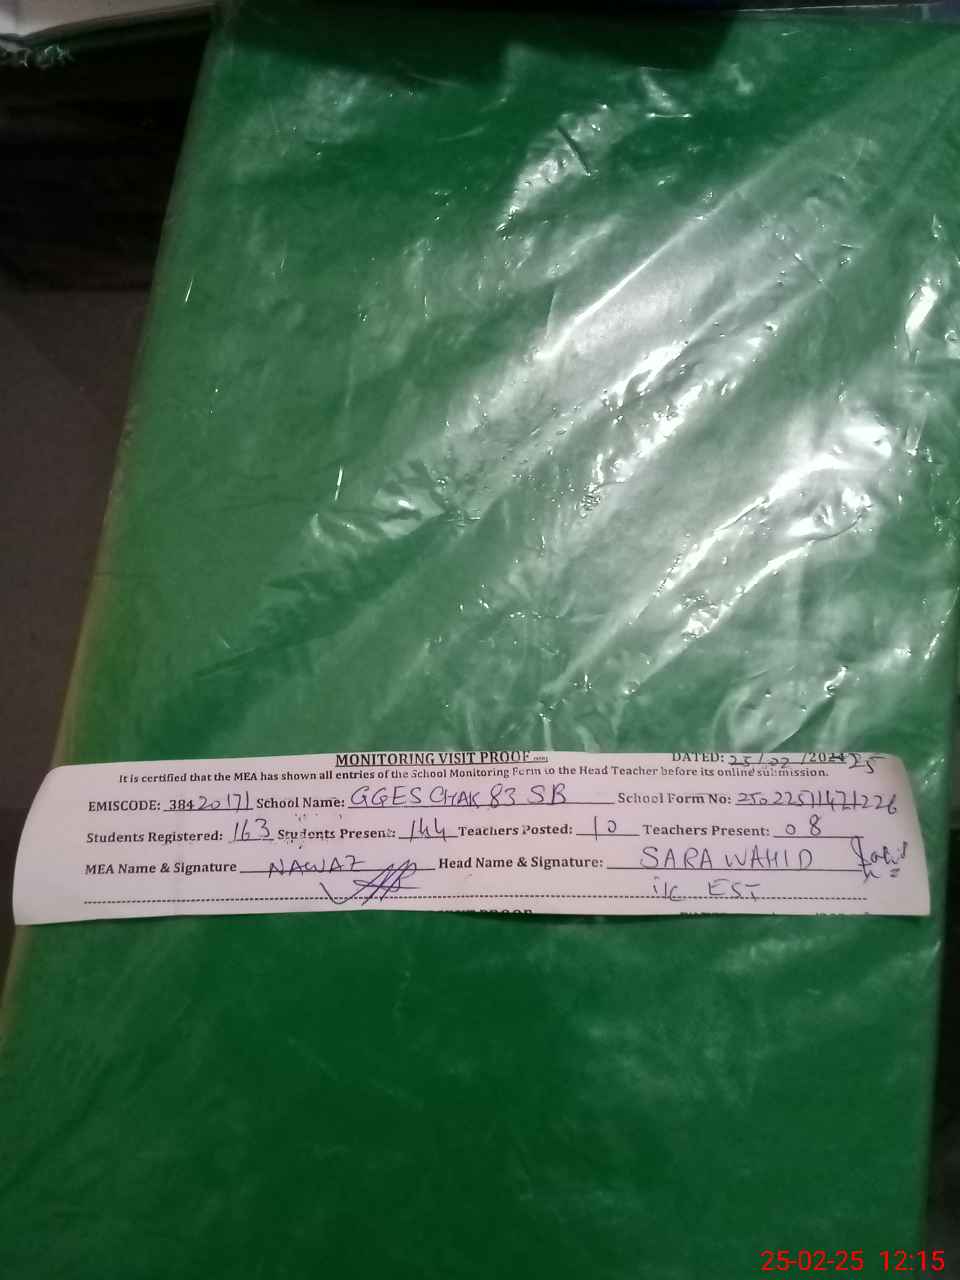 MONITORING VISIT PROOF
DATED: 25/02/202425
It is certified that the MEA has shown all entries of the School Monitoring Form to the Head Teacher before its online submission.
EMISCODE: 38420171 School Name: GGES Chak 83 SB School Form No:
Students Registered: 163 Students Present: 144 Teachers Posted: 10 Teachers Present: 08
MEA Name & Signature NAWAZ Head Name & Signature: SARA WAHID
i/c EST
25-02-25 12:15